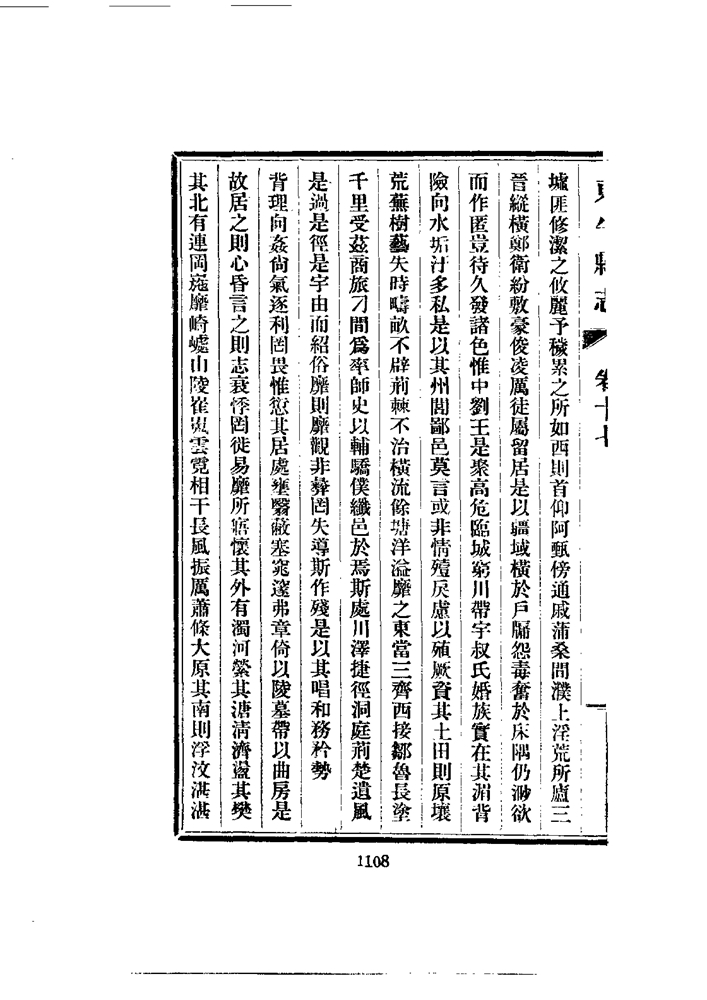 東平縣志 卷十七
墟匪修潔之攸麗予穢累之所如西則首仰阿甄傍通戚蒲桑間濮上淫荒所廬三
晉縱橫鄭衛紛敷豪俊凌厲徒屬留居是以疆域橫於戶牖怨毒奮於床隅仍渺欲
而作匿豈待久發諸色惟中劉王是聚高危臨城窮川帶宇叔氏婚族實在其湄背
險向水垢汙多私是以其州閭鄙邑莫言或非情殪戾慮以殖厥資其土田則原壤
荒蕪樹藝失時疇畝不辟荊棘不治橫流餘塘洋溢靡之東當三齊西接鄒魯長塗
千里受茲商旅刁間為率師史以輔驕僕纖邑於焉斯處川澤捷徑洞庭荊楚遺風
是過是徑是宇由而紹俗靡則靡觀非彝罔失導斯作殘是以其唱和務矜勢
背理向姦尙氣逐利罔畏惟愆其居處壅翳蔽塞窕邃弗章倚以陵墓帶以曲房是
故居之則心昏言之則志哀悸罔徙易靡所寤懷其外有濁河縈其溏淸濟盪其樊
其北有連岡嶷靡崎嶇山陵崔嵬雲霓相干長風振厲蕭條大原其南則浮汶湛湛
1108